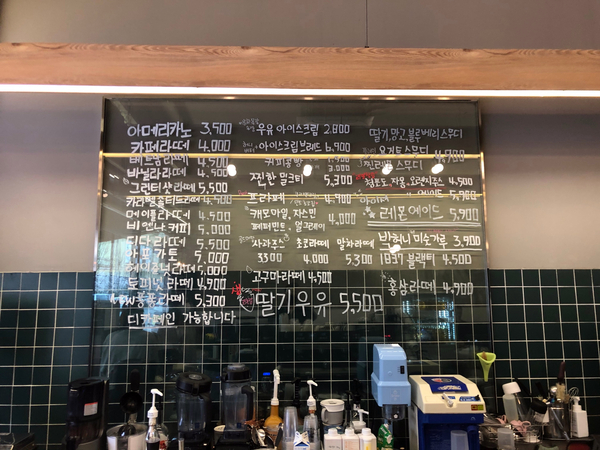 아메리카노 3,500
카페라떼 4,000
라떼 4,500
바닐라라떼 4,500
그린티샷라떼 5,500
4,500
메이플라떼 4,500
비엔나커피 5,000
라떼 5,500
아포가토 5,000
헤이즐넛라떼 5,000
토피넛라떼 4,900
라떼 5,300
디카페인 가능합니다
우유 아이스크림 2,800
아이스크림브레드 6,900
커피콩빵
찐한 밀크티 5,300
프라페 4,900
캐모마일, 자스민
페퍼민트, 얼그레이 4,000
사과주스 초코라떼 말차라떼
3300 4.000 5300
고구마라떼 4,500
딸기우유 5,500
딸기,망고,블루베리스무디
요거트스무디 4,700
스무디
청포도,자몽,오렌지주스 4,500
레몬에이드 5,900
반하나 미숫가루 3,900
1837 블랙티 4,500
홍삼라떼 4,900